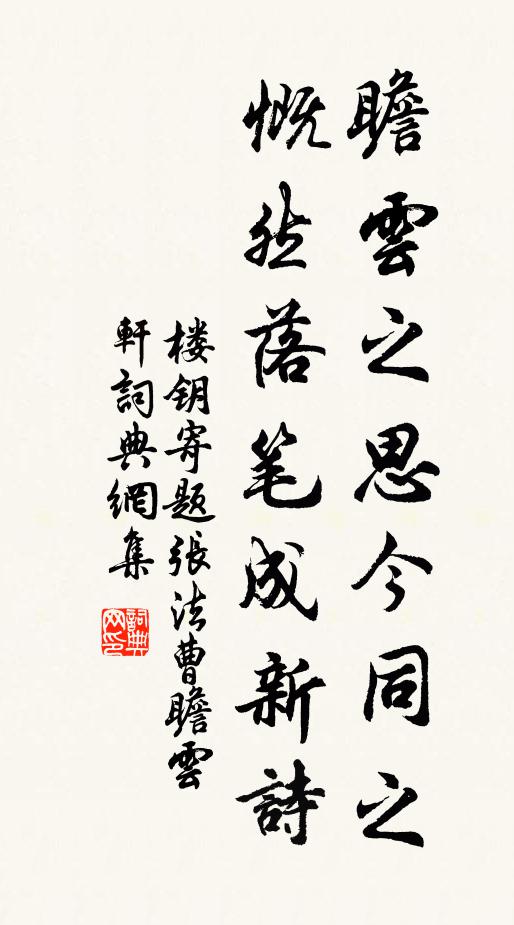 瞻雲之思今同之
慨然落笔成新詩
楼鈅寄题張法曹瞻雲
軒詞典網集
詞典
网印